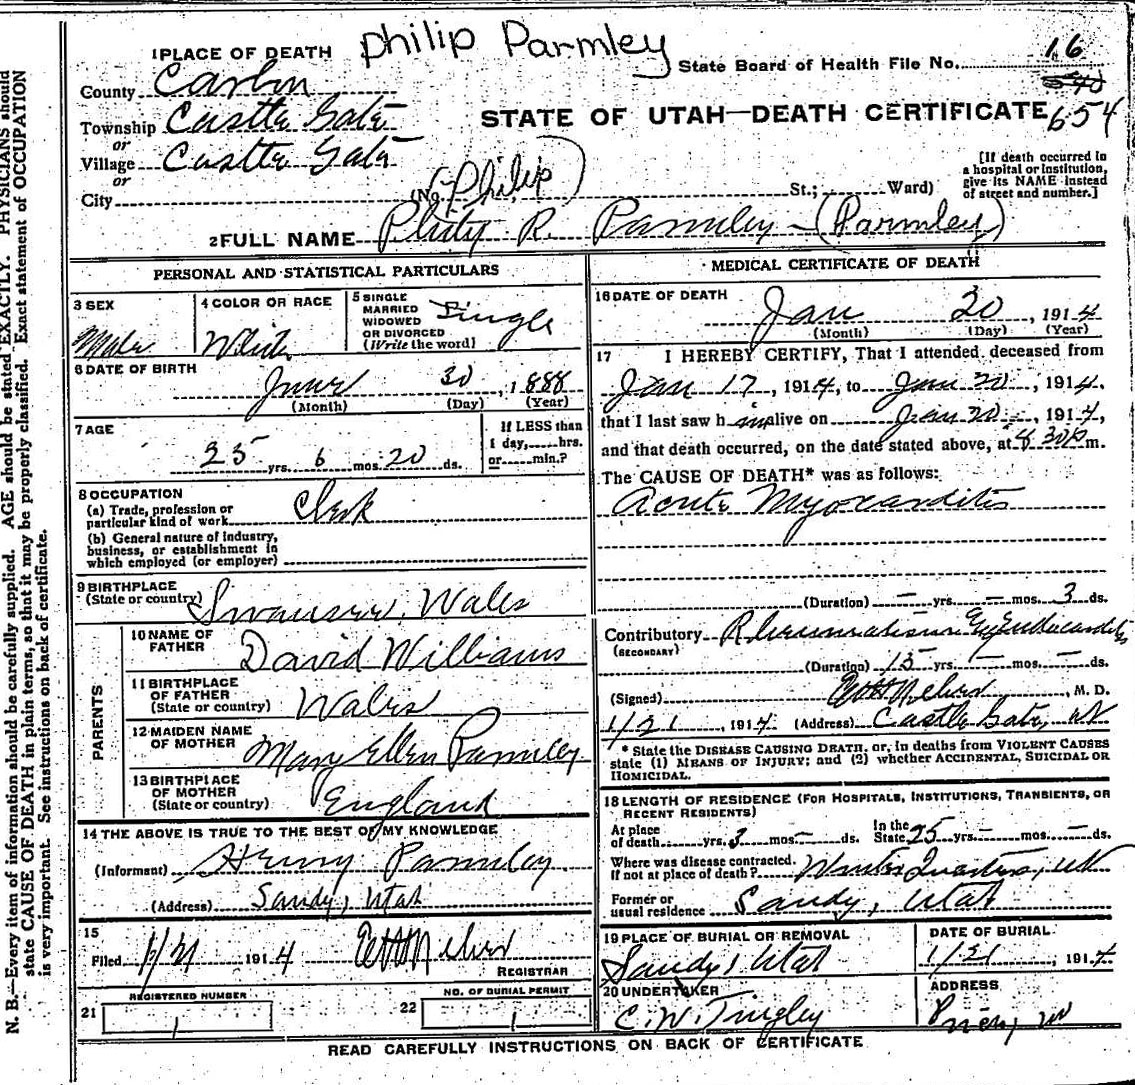 Philip Parmley
1 PLACE OF DEATH
State Board of Health File No. 16
540
County Carbon
STATE OF UTAH—DEATH CERTIFICATE 654
Township Castle Gate
or
Village Castle Gate
or
[If death occurred in a hospital or institution, give its NAME instead of street and number.]
City (No. (Philip) St.; Ward)
2 FULL NAME R. Parmley - (Parmley)
PERSONAL AND STATISTICAL PARTICULARS
3 SEX
Male
4 COLOR OR RACE
White
5 SINGLE MARRIED WIDOWED OR DIVORCED (Write the word)
Single
6 DATE OF BIRTH
June 30, 1888
(Month) (Day) (Year)
7 AGE
25 yrs. 6 mos. 20 ds.
If LESS than 1 day, hrs. or min.?
8 OCCUPATION
(a) Trade, profession or particular kind of work Clerk
(b) General nature of industry, business, or establishment in which employed (or employer)
9 BIRTHPLACE
(State or country) Swansea, Wales
PARENTS
10 NAME OF FATHER David Williams
11 BIRTHPLACE OF FATHER (State or country) Wales
12 MAIDEN NAME OF MOTHER Mary Ellen Parmley
13 BIRTHPLACE OF MOTHER (State or country) England
14 THE ABOVE IS TRUE TO THE BEST OF MY KNOWLEDGE
(Informant) Henry Parmley
(Address) Sandy, Utah
15
Filed 1/21 1914
REGISTRAR
21 REGISTERED NUMBER
1
22 NO. OF BURIAL PERMIT
1
MEDICAL CERTIFICATE OF DEATH
16 DATE OF DEATH
Jan 20, 1914
(Month) (Day) (Year)
17 I HEREBY CERTIFY, That I attended deceased from
Jan 17, 1914, to Jan 20, 1914,
that I last saw h im alive on Jan 20, 1914,
and that death occurred, on the date stated above, at 8 30 p m.
The CAUSE OF DEATH* was as follows:
Acute Myocarditis
(Duration) — yrs. — mos. 3 ds.
Contributory Rheumatism Endocarditis
(SECONDARY)
(Duration) 15 yrs. — mos. — ds.
(Signed) , M. D.
1/21, 1914 (Address) Castle Gate, Ut
* State the DISEASE CAUSING DEATH, or, in deaths from VIOLENT CAUSES state (1) MEANS OF INJURY; and (2) whether ACCIDENTAL, SUICIDAL OR HOMICIDAL.
18 LENGTH OF RESIDENCE (FOR HOSPITALS, INSTITUTIONS, TRANSIENTS, OR RECENT RESIDENTS)
At place of death yrs. 3 mos. — ds. In the State 25 yrs. — mos. — ds.
Where was disease contracted, If not at place of death? Winter Quarters, Ut
Former or usual residence Sandy, Utah
19 PLACE OF BURIAL OR REMOVAL
Sandy, Utah
DATE OF BURIAL
1/21, 1914
20 UNDERTAKER
C. W. Tingley
ADDRESS
Price, Ut
READ CAREFULLY INSTRUCTIONS ON BACK OF CERTIFICATE
N. B.—Every item of information should be carefully supplied. AGE should be stated EXACTLY. PHYSICIANS should
state CAUSE OF DEATH in plain terms, so that it may be properly classified. Exact statement of OCCUPATION
is very important. See instructions on back of certificate.